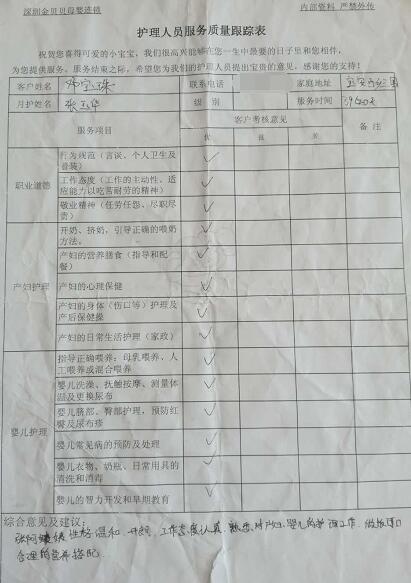 深圳金贝贝母婴连锁 内部资料 严禁外传
护理人员服务质量跟踪表
祝贺您喜得可爱的小宝宝，我们很高兴能够在您一生中最要的日子里和您相伴，
为您提供服务。服务结束之际，希望您为我们的护理人员提出宝贵的意见，感谢您的支持！
客户姓名 宝珠 联系电话 家庭地址
月护姓名 张玉华 级 别 服务时间
服务项目 客户考核意见 备 注
优 差
职业道德
行为规范（言谈、个人卫生及
着装）
工作态度（工作的主动性、适
应能力以吃苦耐劳的精神）
敬业精神（任劳任怨、尽职尽
责）
产妇护理
开奶、挤奶，引导正确的喂奶
方法。
产妇的营养膳食（指导和配
餐）
产妇的心理保健
产妇的身体（伤口等）护理及
产后保健操
产妇的日常生活护理（家政）
婴儿护理
指导正确喂养：母乳喂养、人
工喂养或混合喂养
婴儿洗澡、抚触按摩、测量体
温及更换尿布
婴儿脐部、臀部护理，预防红
臀及尿布疹
婴儿常见病的预防及处理
婴儿衣物、奶瓶、日常用具的
清洗和消毒
婴儿的智力开发和早期教育
综合意见及建议：
张阿姨性格温和、开朗，工作态度认真，熟悉对产妇、婴儿的护理工作，做饭
合理的营养搭配。